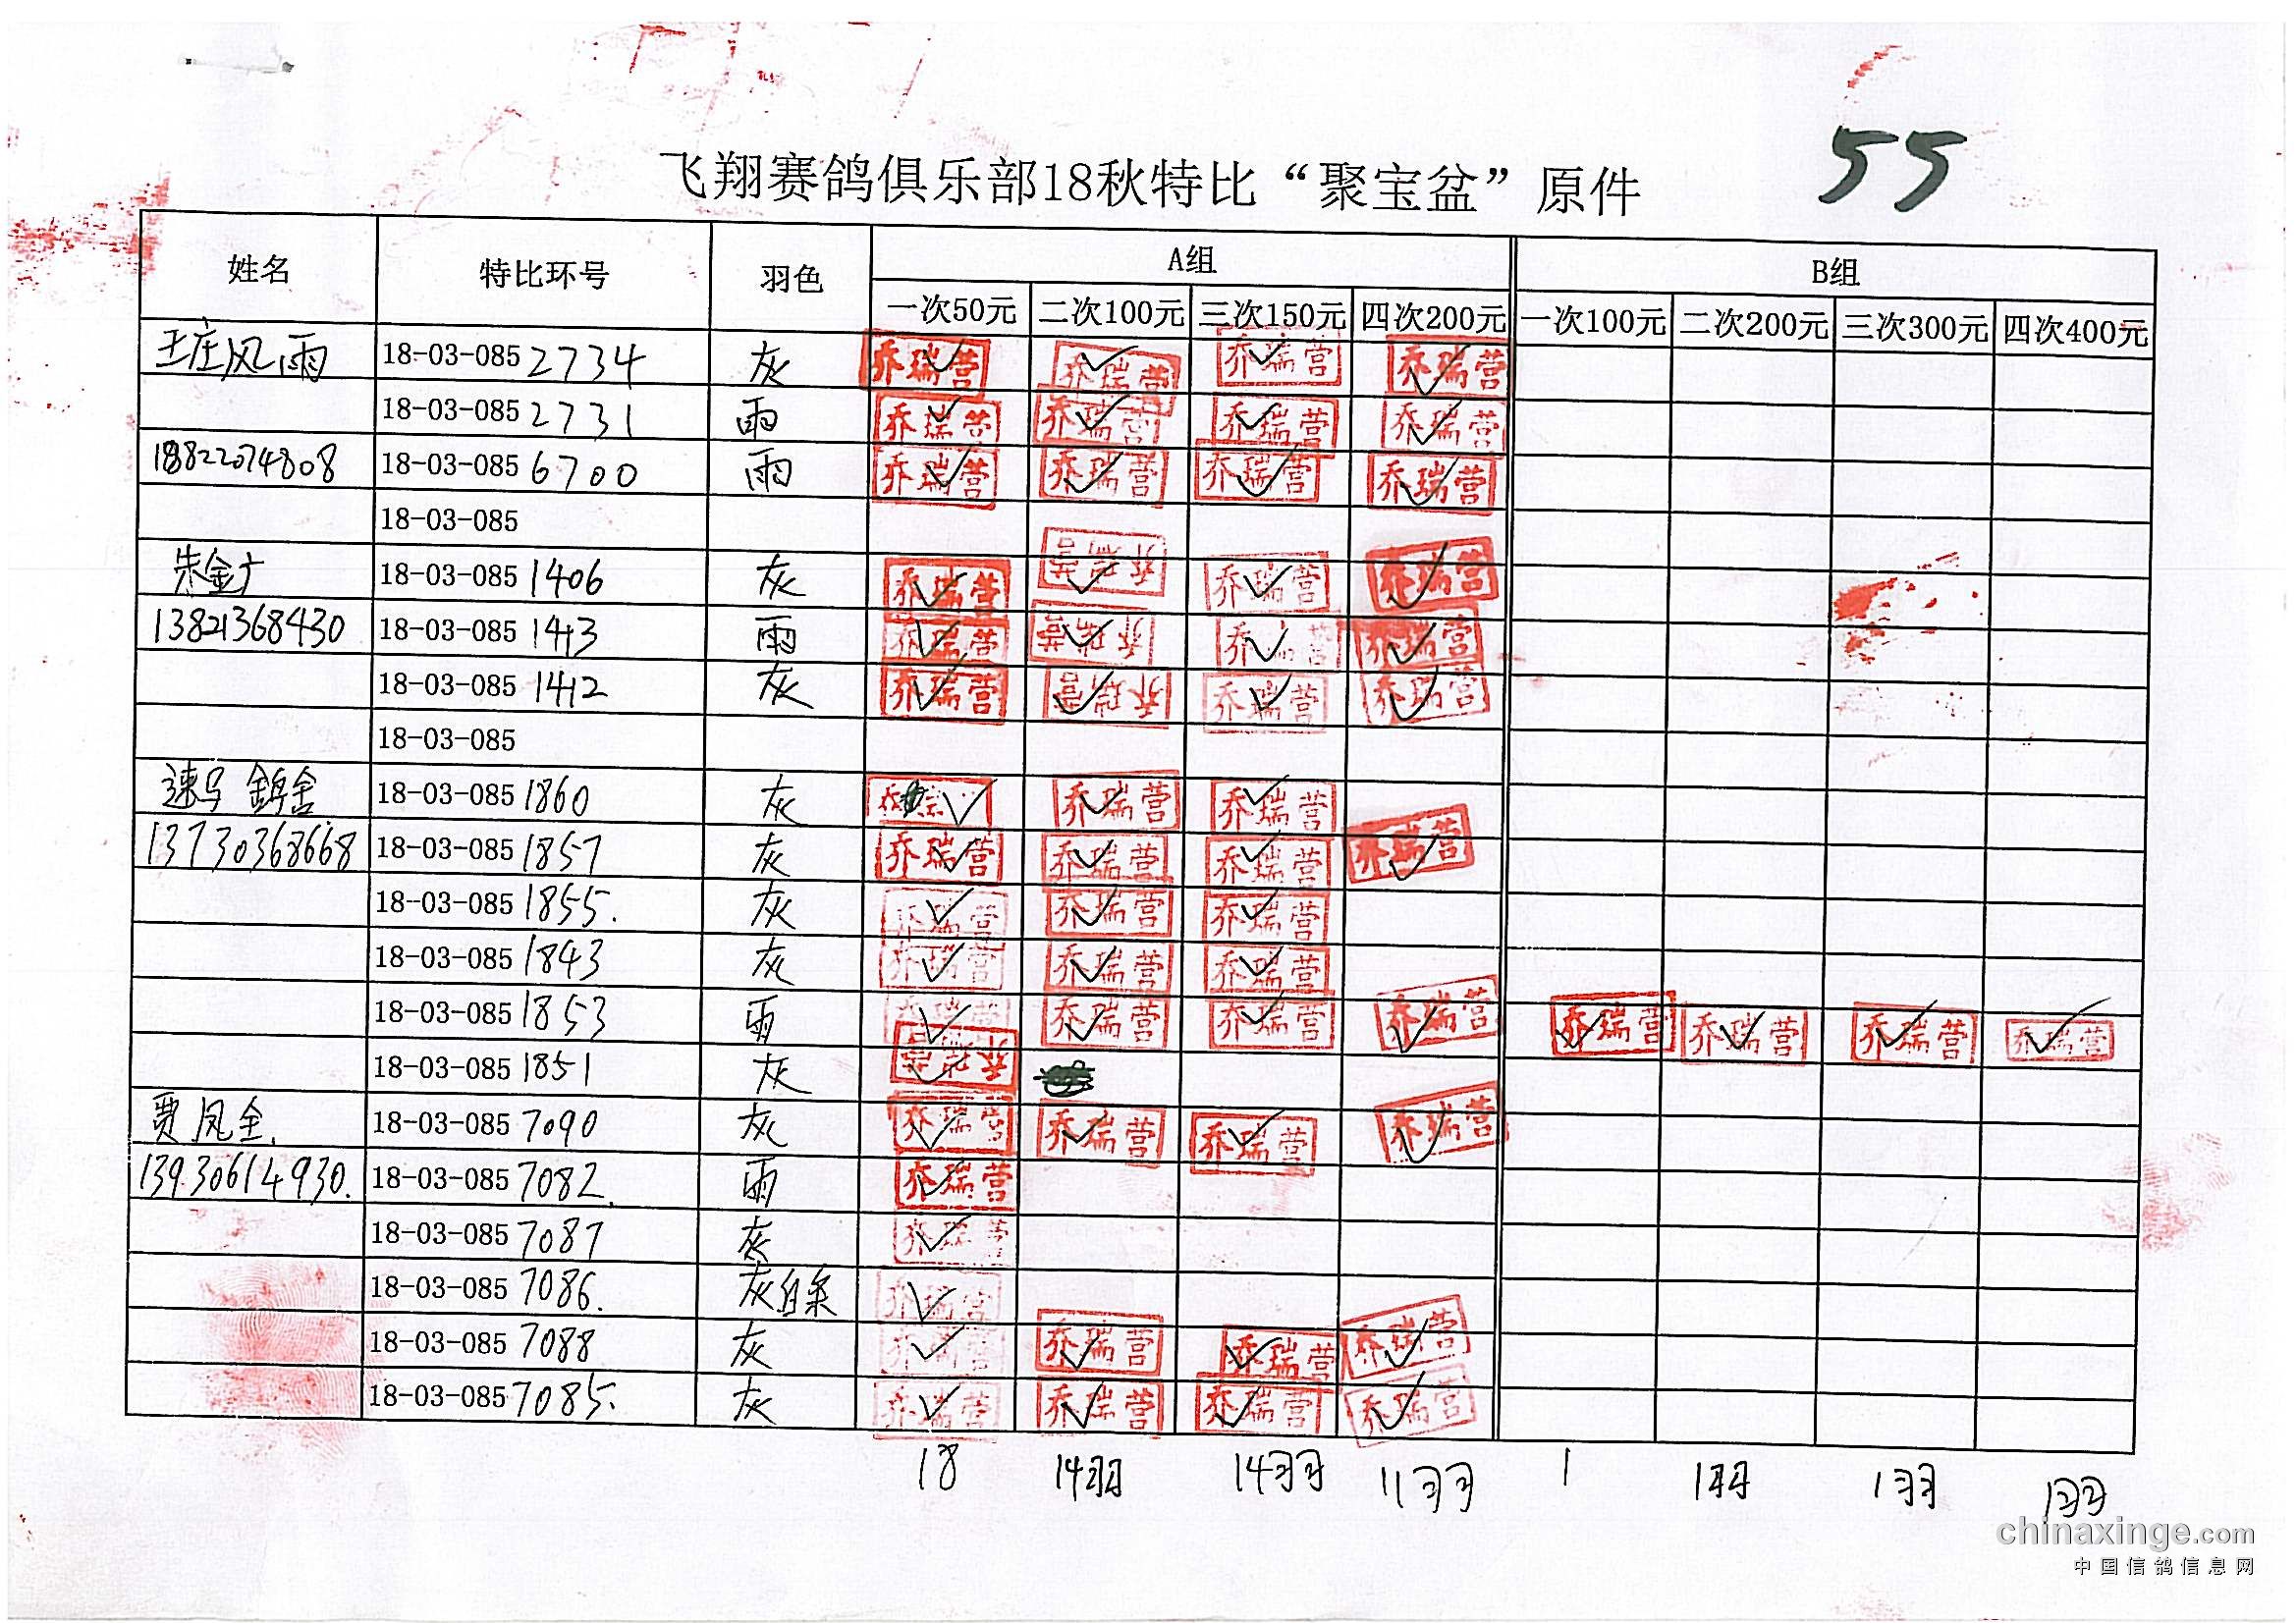 55
飞翔赛鸽俱乐部18秋特比“聚宝盆”原件
姓名 特比环号 羽色 A组 B组
一次50元 二次100元 三次150元 四次200元 一次100元 二次200元 三次300元 四次400元
王庄风雨 18-03-085 2734 灰 乔瑞营 乔瑞营 乔瑞营 乔瑞营
18-03-085 2731 雨 乔瑞营 乔瑞营 乔瑞营 乔瑞营
18822074808 18-03-085 6700 雨 乔瑞营 乔瑞营 乔瑞营 乔瑞营
18-03-085
朱金广 18-03-085 1406 灰 乔瑞营 乔瑞营 乔瑞营 乔瑞营
13821368430 18-03-085 1413 雨 乔瑞营 乔瑞营 乔瑞营 乔瑞营
18-03-085 1412 灰 乔瑞营 乔瑞营 乔瑞营 乔瑞营
18-03-085
18-03-085 1860 灰 乔瑞营 乔瑞营
13730368668 18-03-085 1857 灰 乔瑞营 乔瑞营 乔瑞营 乔瑞营
18-03-085 1855. 灰 乔瑞营 乔瑞营 乔瑞营
18-03-085 1843 灰 乔瑞营 乔瑞营 乔瑞营
18-03-085 1853 雨 乔瑞营 乔瑞营 乔瑞营 乔瑞营 乔瑞营 乔瑞营 乔瑞营 乔瑞营
18-03-085 1851 灰 乔瑞营
贾凤全. 18-03-085 7090 灰 乔瑞营 乔瑞营 乔瑞营 乔瑞营
13930614930. 18-03-085 7082. 雨 乔瑞营
18-03-085 7087 灰 乔瑞营
18-03-085 7086. 灰白条 乔瑞营
18-03-085 7088 灰 乔瑞营 乔瑞营 乔瑞营 乔瑞营
18-03-085 7085. 灰 乔瑞营 乔瑞营 乔瑞营 乔瑞营
18 14羽 14羽 11羽 1 1羽 1羽 1羽
chinaxinge.com
中国信鸽信息网